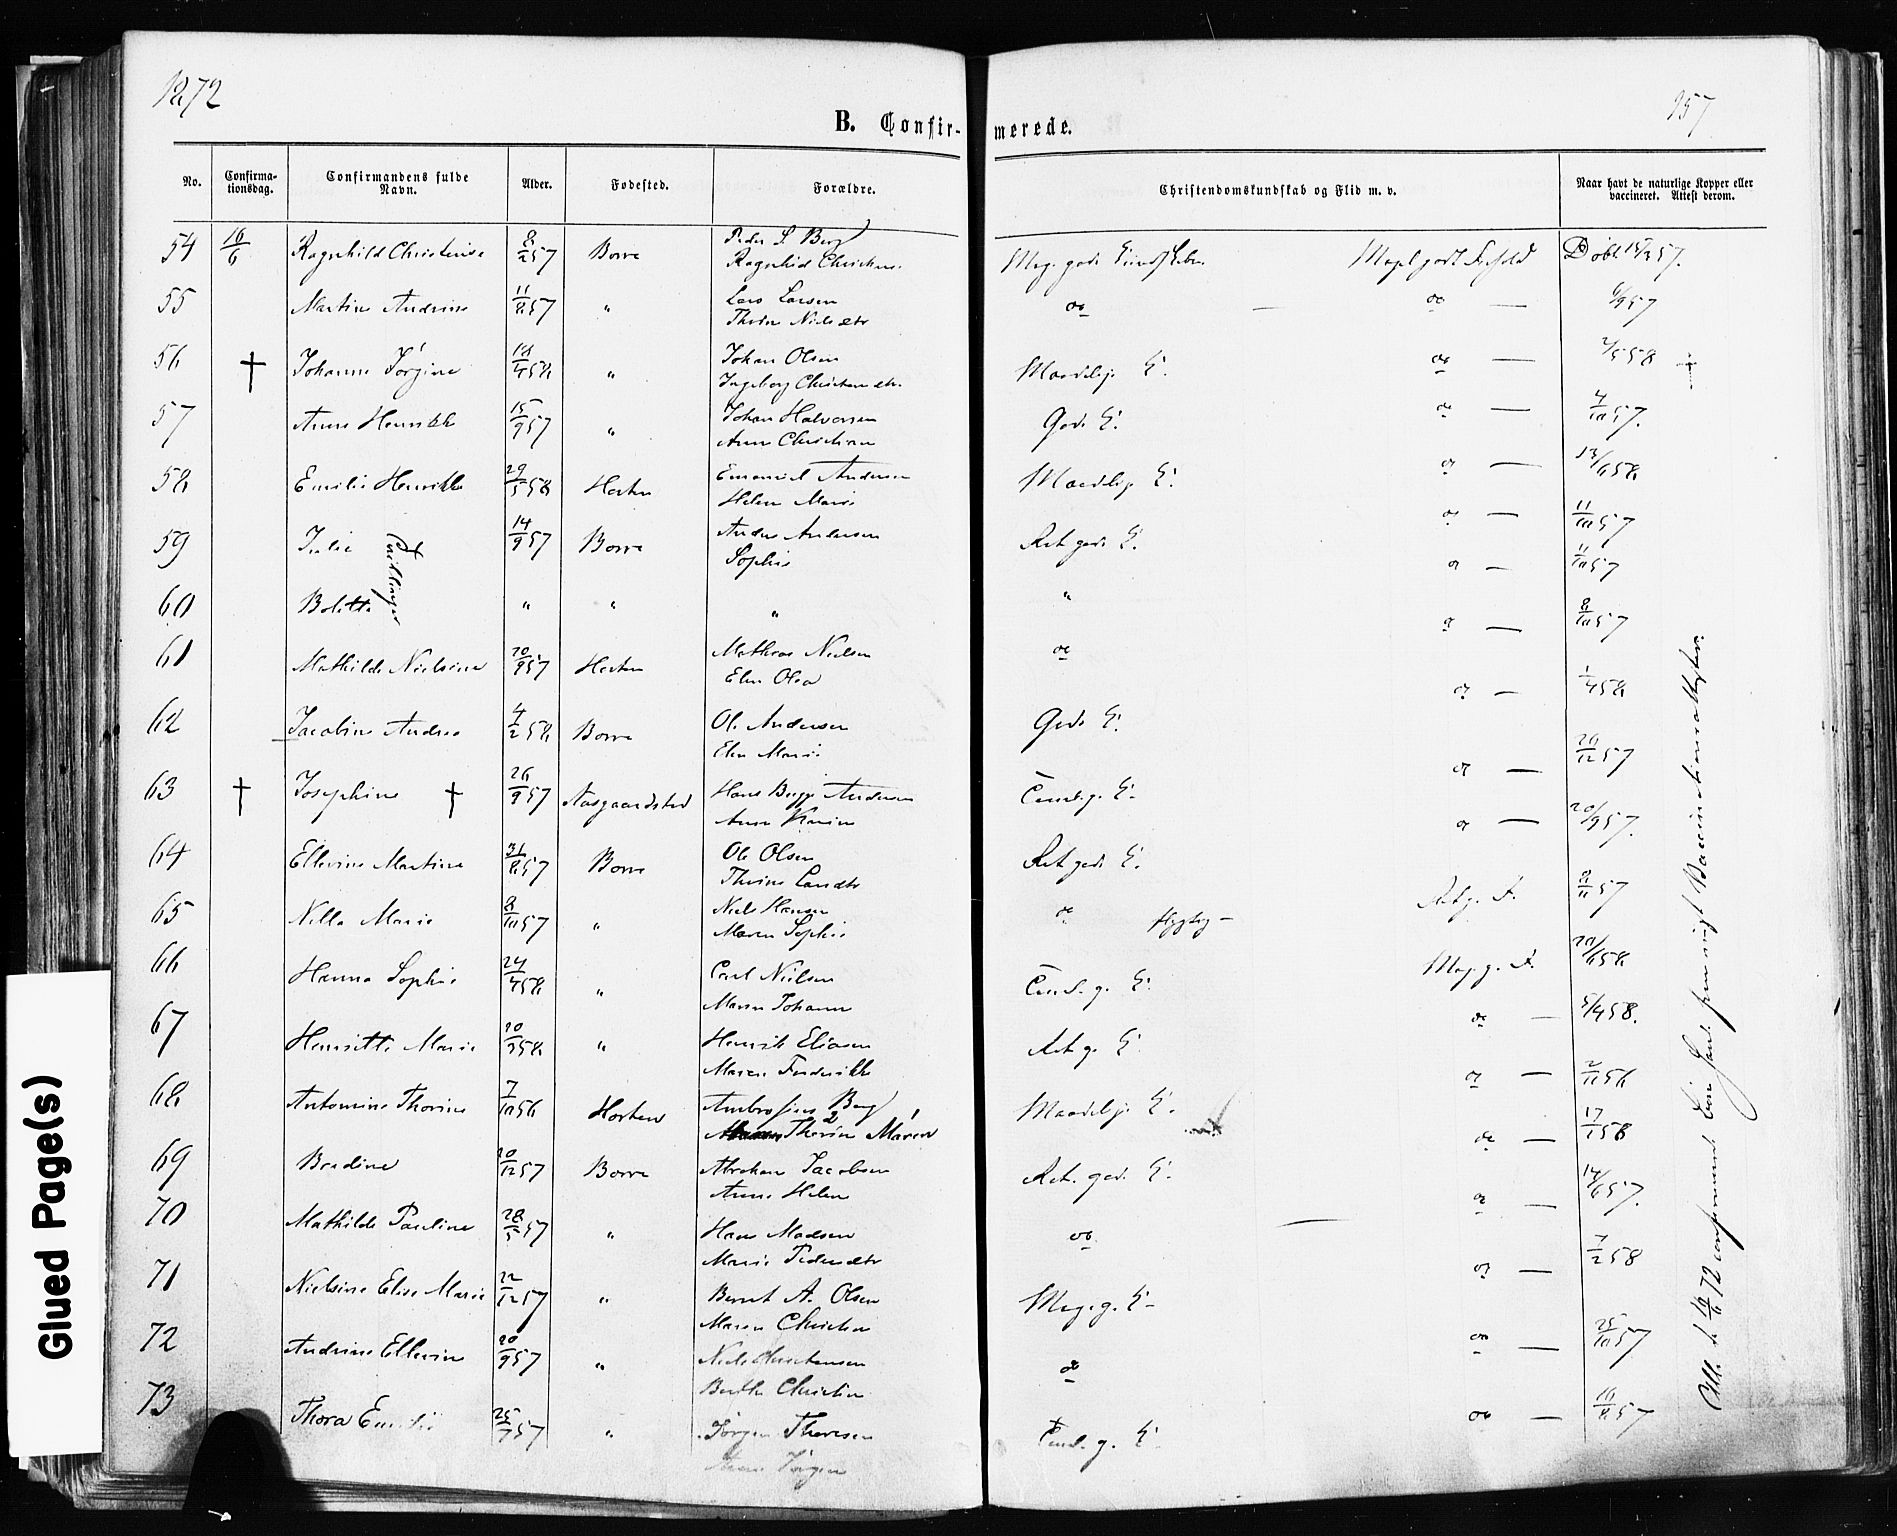 1872
157
B. Confirmerede.
No. Confirmationsdag. Confirmandens fulde Navn. Alder. Fødested. Forældre. Christendomskundskab og Flid m. v. Naar havt de naturlige Kopper eller vaccineret. Attest derom.
54 16/6 Ragnhild Christense 8/2 57 Borre Peder S. Berg Meg. godt Kundskaber Meget godt Forhold Døbt 15/3 57.
Ragnhild Christens.
55 Martine Andrine 11/8 57 " Lars Larsen do — do — 6/9 57
Thrine Nielsdtr
56 † Johanne Jørgine 18/4 58 " Johan Olsen Maadelig K. do — 2/5 58
Ingeborg Christensdtr.
57 Anne Henrikke 15/9 57 " Johan Halvorsen Godt K. do — 4/10 57.
Anne Christiane
58 Emilie Henrikke 29/5 58 Horten Emanuel Andersen Maadelig K. do — 13/6 58
Helene Marie
59 Julie Tvillinger 14/9 57 Borre Anders Andersen Ret godt K. do — 11/10 57
Sophie
60 Bolette " " " " do — 11/10 57
61 Mathilde Nielsine 20/9 57 Horten Mathias Nielsen do do — 8/10 57
Elen Olea
62 Jacobine Andrea 4/2 58 Borre Ole Andersen Godt K. do — 1/4 58
Elen Marie
63 † Josephine † 26/9 57 Aasgaardstrand Hans Andersen Temel. g. K. do — 26/12 57
Anne Karine
64 Ellevine Martine 31/8 57 Borre Ole Olsen Ret godt K. do — 20/9 57.
Thrine
65 Nilla Marie 8/10 57 " Niels Hansen do flygtig — Ret g. F. 8/11 57
Maren Sophie
66 Hanna Sophie 24/4 58 " Carl Nielsen Temel. g. K. Meg. g. F. 20/6 58
Maren Johanne
67 Henriette Marie 20/3 58 " Henrik Eliasen Ret g. K. do — 5/4 58.
Maren Frederikke
68 Antomine Thorine 7/10 56 Horten Ambrosius Berg Maadelig K. do — 2/11 56
Therine Maren
69 Berdine 20/12 57 Borre Abraham Jacobsen Ret. godt K. do — 17/1 58
Anne Helene
70 Mathilde Pauline 28/5 57 " Hans Madsen do — do — 14/6 57.
Marie Pedersdtr
71 Nielsine Elise Marie 22/12 57 " Bernt A. Olsen Meg. g. K. do — 7/2 58
Maren Christine
72 Andrine Ellevine 20/9 57 " Niels Christensen do do — 25/10 57
Berthe Christine
73 Thora Emilie 25/7 57 " Jørgen Thoresen Temel. g. K. do — 16/8 57
Anne Jørgine
Alle d. 16/6 72 confirmerede Børn havde fremvist Vaccinationsattester.
Glued Page(s)